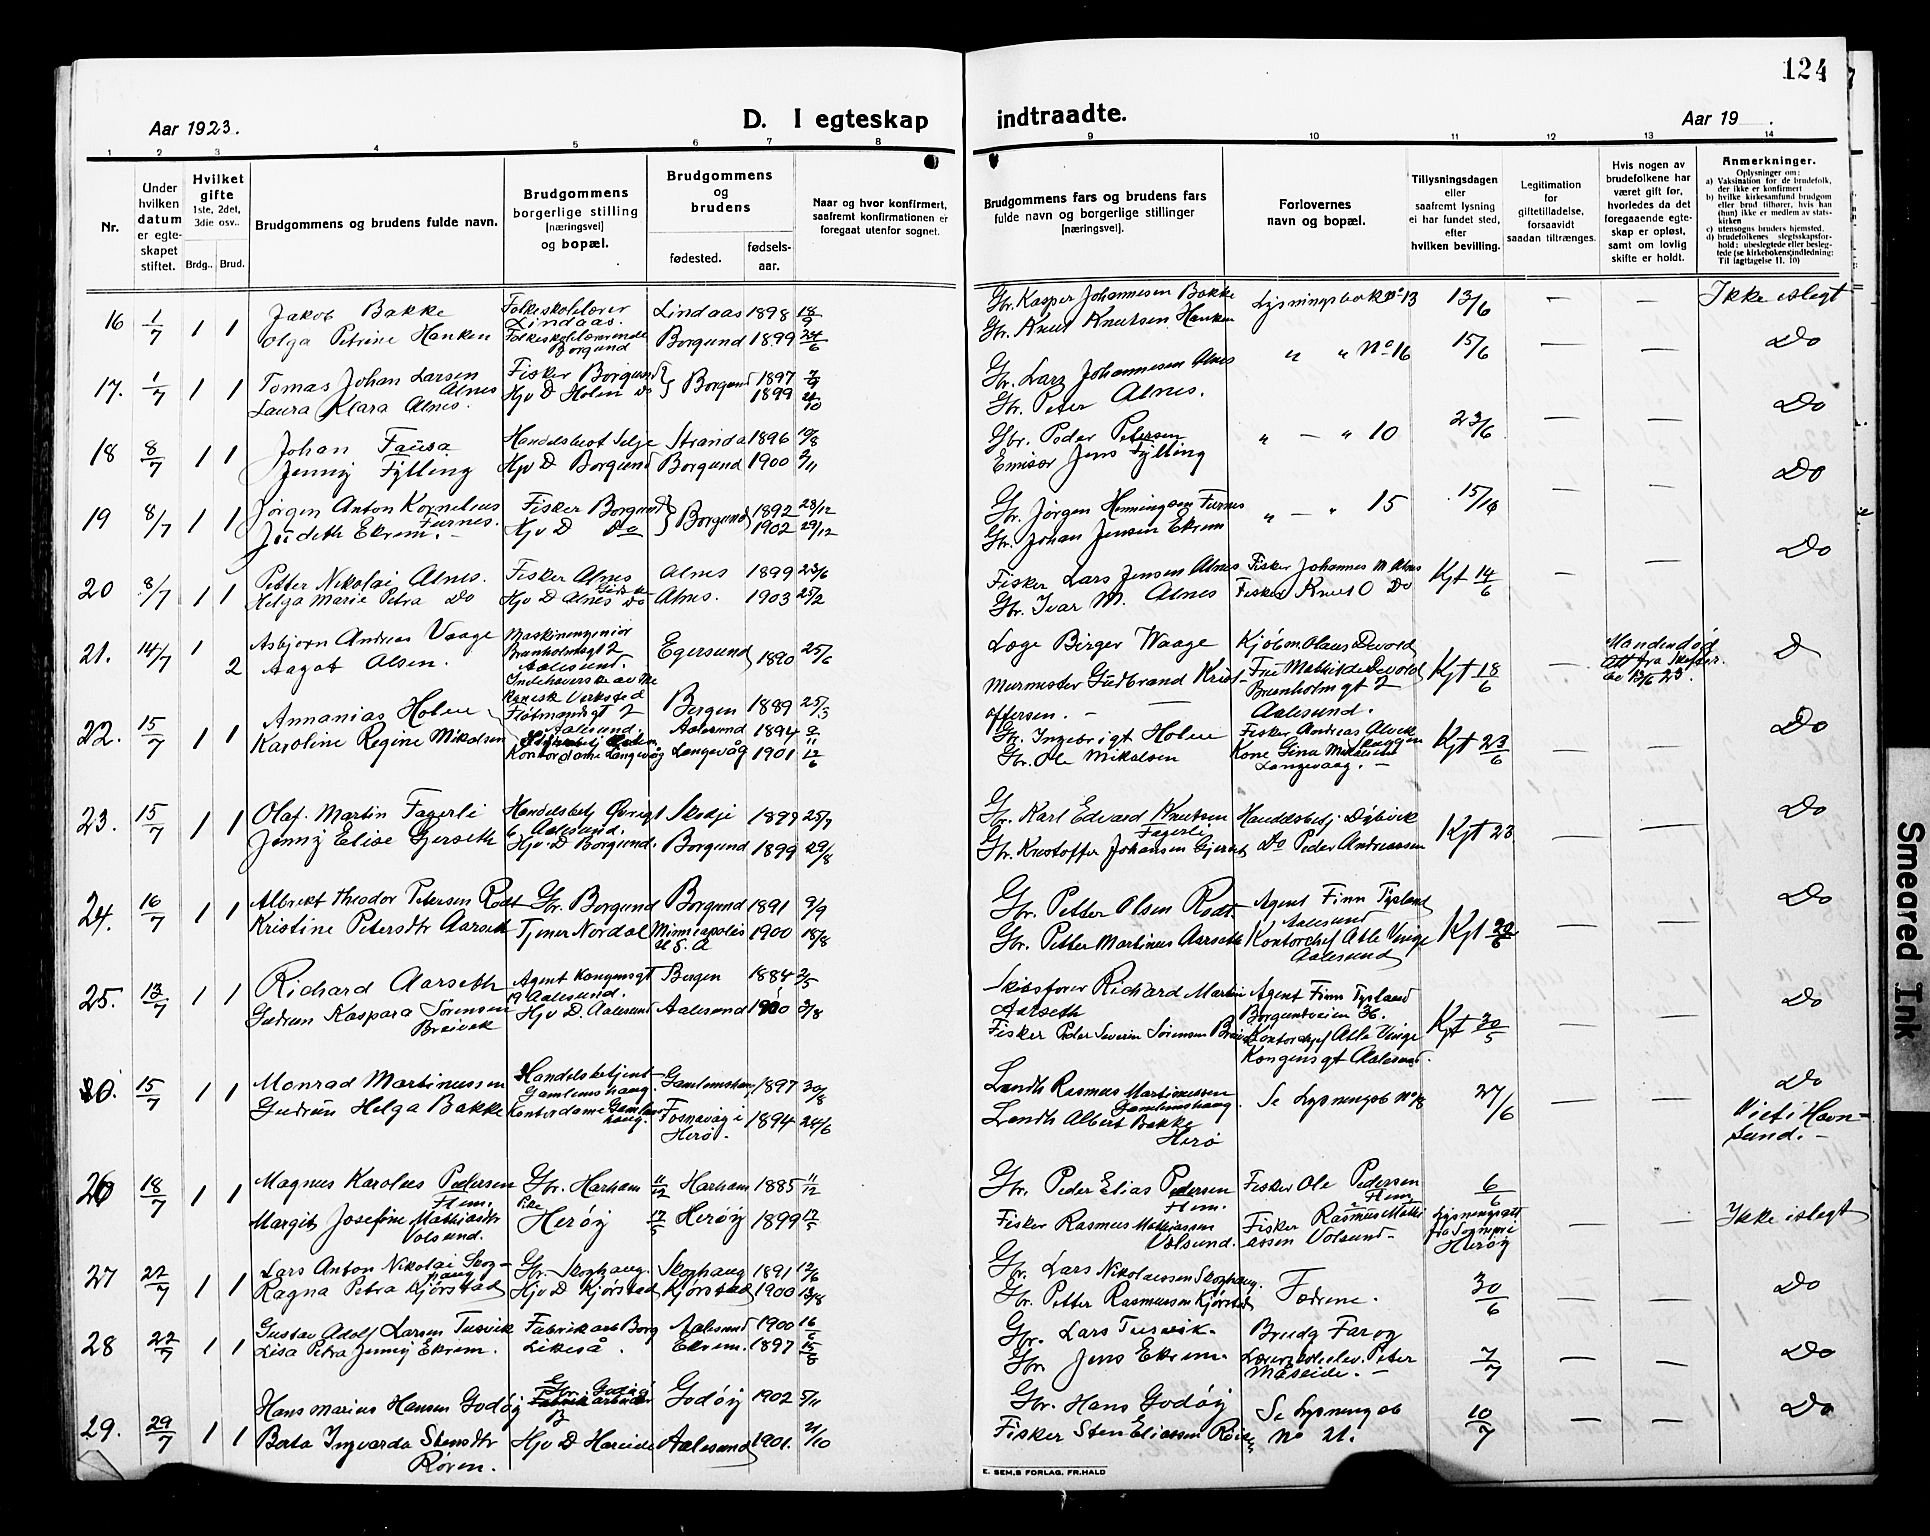 124
Aar 1923.
D. I egteskap indtraadte.
Aar 19 .
1 2 3 4 5 6 7 8 9 10 11 12 13 14
Nr.
Under hvilken datum er egteskapet stiftet.
Hvilket gifte 1ste, 2det, 3die osv..
Brdg.. Brud.
Brudgommens og brudens fulde navn.
Brudgommens borgerlige stilling [næringsvei] og bopæl.
Brudgommens og brudens
fødested.
fødsels-aar.
Naar og hvor konfirmert, saafremt konfirmationen er foregaat utenfor sognet.
Brudgommens fars og brudens fars fulde navn og borgerlige stillinger [næringsvei].
Forlovernes navn og bopæl.
Tillysningsdagen eller saafremt lysning ei har fundet sted, efter hvilken bevilling.
Legitimation for giftetilladelse, forsaavidt saadan tiltrænges.
Hvis nogen av brudefolkene har været gift før, hvorledes da det foregaaende egteskap er opløst, samt om lovlig skifte er holdt.
Anmerkninger.
Oplysninger om:
a) Vaksination for de brudefolk, der ikke er konfirmert
b) hvilke kirkesamfund brudgom eller brud tilhører, hvis han (hun) ikke er medlem av statskirken
c) utensogns bruders hjemsted.
d) brudefolkenes slegtsskapsforhold: ubeslegtede eller beslegtede (se kirkebokens indledning: Til iagttagelse II. 10)
16 1/7 1 1 Jakob Bakke Folkeskolelærer Lindaas. Lindaas 1898 18/9 Gbr. Kasper Johannesen Bakke Lysningsbok No 13 13/6 — — Ikke i slegt
Olga Petrine Hanken Folkeskolelærerinde Borgund Borgund 1899 24/6 Gbr. Knut Knutsen Hanken
17. 1/7 1 1 Tomas Johan Larsen Alnes Fisker Borgund } Borgund 1897 Gbr. Lars Johannesen Alnes " " No 16 15/6 — — Do
Laura Klara Alnes. Hjv D Holen Do 1899 Gbr. Peter Alnes.
18 8/7 1 1 Johan Fausa Handelsbest Selje Stranda 1896 Gbr. Peder Petersen " — " 10 23/6 — — Do
Jenny Fylling Hjv D Borgund Borgund 1900 2/11 Emisær Jens Fylling
19 8/7 1 1 Jørgen Anton Kornelius Furnes. Fisker Borgund } Borgund 1892 28/12 Gbr. Jørgen Henningsen Furnes " — " 15 — — Do
Judeth Ekrem. — Hjv D Do 1902 29/12 Gbr. Johan Jensen Ekrem
20 8/7 1 1 Petter Nikolai Alnes. Fisker Alnes Alnes 1899 23/6 Fisker Lars Jensen Alnes Fisker Johannes M Alnes Kgt 14/6 — — Do
Helga Marie Petra Do Hjv D Alnes Do Alnes. 1903 25/2 Gbr. Ivar M. Alnes Fisker Knut O Do
21. 14/7 1 Asbjørn Andreas Vaage Maskiningeniør Brunholmsgt 2 Aalesund. Egersund 1890 25/6 Læge Birger Waage Kjøbm. Olaus Devold Kgt 18/6 — D
2 Aagot Olsen. Bergen 1889 25/3 Murmester Gudbrand Kristoffersen. — Frue Mathilde Devold Brunholmgt 2 Aalesund.
22. 15/7 1 1 Annanias Holen Aalesund 1894 Gbr. Ingebrigt Holen Fisker Andreas Alvik Kgt 23/6 — — Do
Karoline Regine Mikalsen Kontordame Langevåg Langevåg 1901 12/6 Gbr. Ole Mikalsen Kone Gina Mikalsen Langevaag. —
23. 15/7 1 1 Olaf. Martin Fagerli Handelsbetj Aalesund. Skodje 1897 25/7 Gbr. Karl Edvard Knutsen Fagerli Handelsbetj. Dybvik Kgt 23 — — Do
Jenny Elise Gjerseth Hjv. D Borgund. Borgund 1899 29/8 Gbr. Kristoffer Johansen Gjerset Do Peder Andreassen
24. 16/7 1 1 Albrikt Theodor Petersen Rødt Gbr. Borgund Borgund 1891 9/9 Gbr. Petter Olsen Rødt. Agent Finn Tysland Aalesund Kgt — — Do
Kristine Petersdtr Aarseth Tjener Nørdal Minneapolis U.S.A 1900 18/8 Gbr. Petter Martinus Aarseth Kontorchef Atle Vinge Aalesund
25. 13/7 1 1 Richard Aarseth Agent Kongensgt 19 Aalesund. Bergen 1884 2/5 Skibsfører Richard Martin Aarseth Agent Finn Tysland Borgundveien 36. Kgt 30/5 — — Do
Gudrun Kaspara Sørensen Breivik Hjv D. Aalesund Aalesund 1900 3/8 Fisker Peder Severin Sørensen Kontorchef Atle Vinge Kongensgt Aalesund.
15/7 1 1 Monrad Martinussen Handelsbetjent Gamlemshaug. Gamlemshaug 1897 30/8 Landh Rasmus Martinussen Gamlemshaug. Se Lysningsb No 18 27/6 — — Do
Gudrun Helga Bakke Kontordame Gamlemshaug. Fosnavåg i Herø. 1894 24/6 Landh Albert Bakke Herø Viet i Havnsund. —
26 18/7 1 1 Magnus Karolus Pedersen Flem. Gbr. Harham 11/12 Harham 1885 11/12 Gbr. Peder Elias Pedersen Flem. Fisker Ole Pedersen Flem 6/6 — — Ikke i slegt
Margit Josefine Mathiasdtr Volsund. Pike Herøy 17/5 Herøy 1899 17/5 Fisker Rasmus Mathiassen Volsund. Fisker Rasmus Mathiassen Volsund — Lysningsatt fra Sognepr i Herøy
27 22/7 1 1 Lars Anton Nikolai Skoghaug Gbr. Skoghaug. Skoghaug 1891 12/6 Gbr. Lars Nikolaissen Skoghaug. Fædrene. 30/6 — — Do
Ragna Petra Kjørstad Hjv D Kjørstad Kjørstad 1900 13/8 Gbr. Petter Rasmussen Kjørstad
28 22/7 1 1 Gustav Adolf Larsen Tusvik Fabrikarb Borg Aalesund 1900 Gbr. Lars Tusvik. Brudg Far og 7/7 — — Do
Lisa Petra Jenny Ekrem. Likeså. Ekrem. 1897 15/8 Gbr Jens Ekrem Peter Måseide. —
29. 29/7 1 1 Hans Marius Hansen Godøy Gbr. Godøy Godøy 1902 5/11 Gbr. Hans Godøy Se Lysningsb No 21. 10/7 — — Do
Berta Ingvarda Stensdtr Røren. Hjv D Hareide Aalesund 1901. 21/10 Fisker Sten Eliassen Røren
E. SEM.S FORLAG, FR.HALD
Smeared Ink